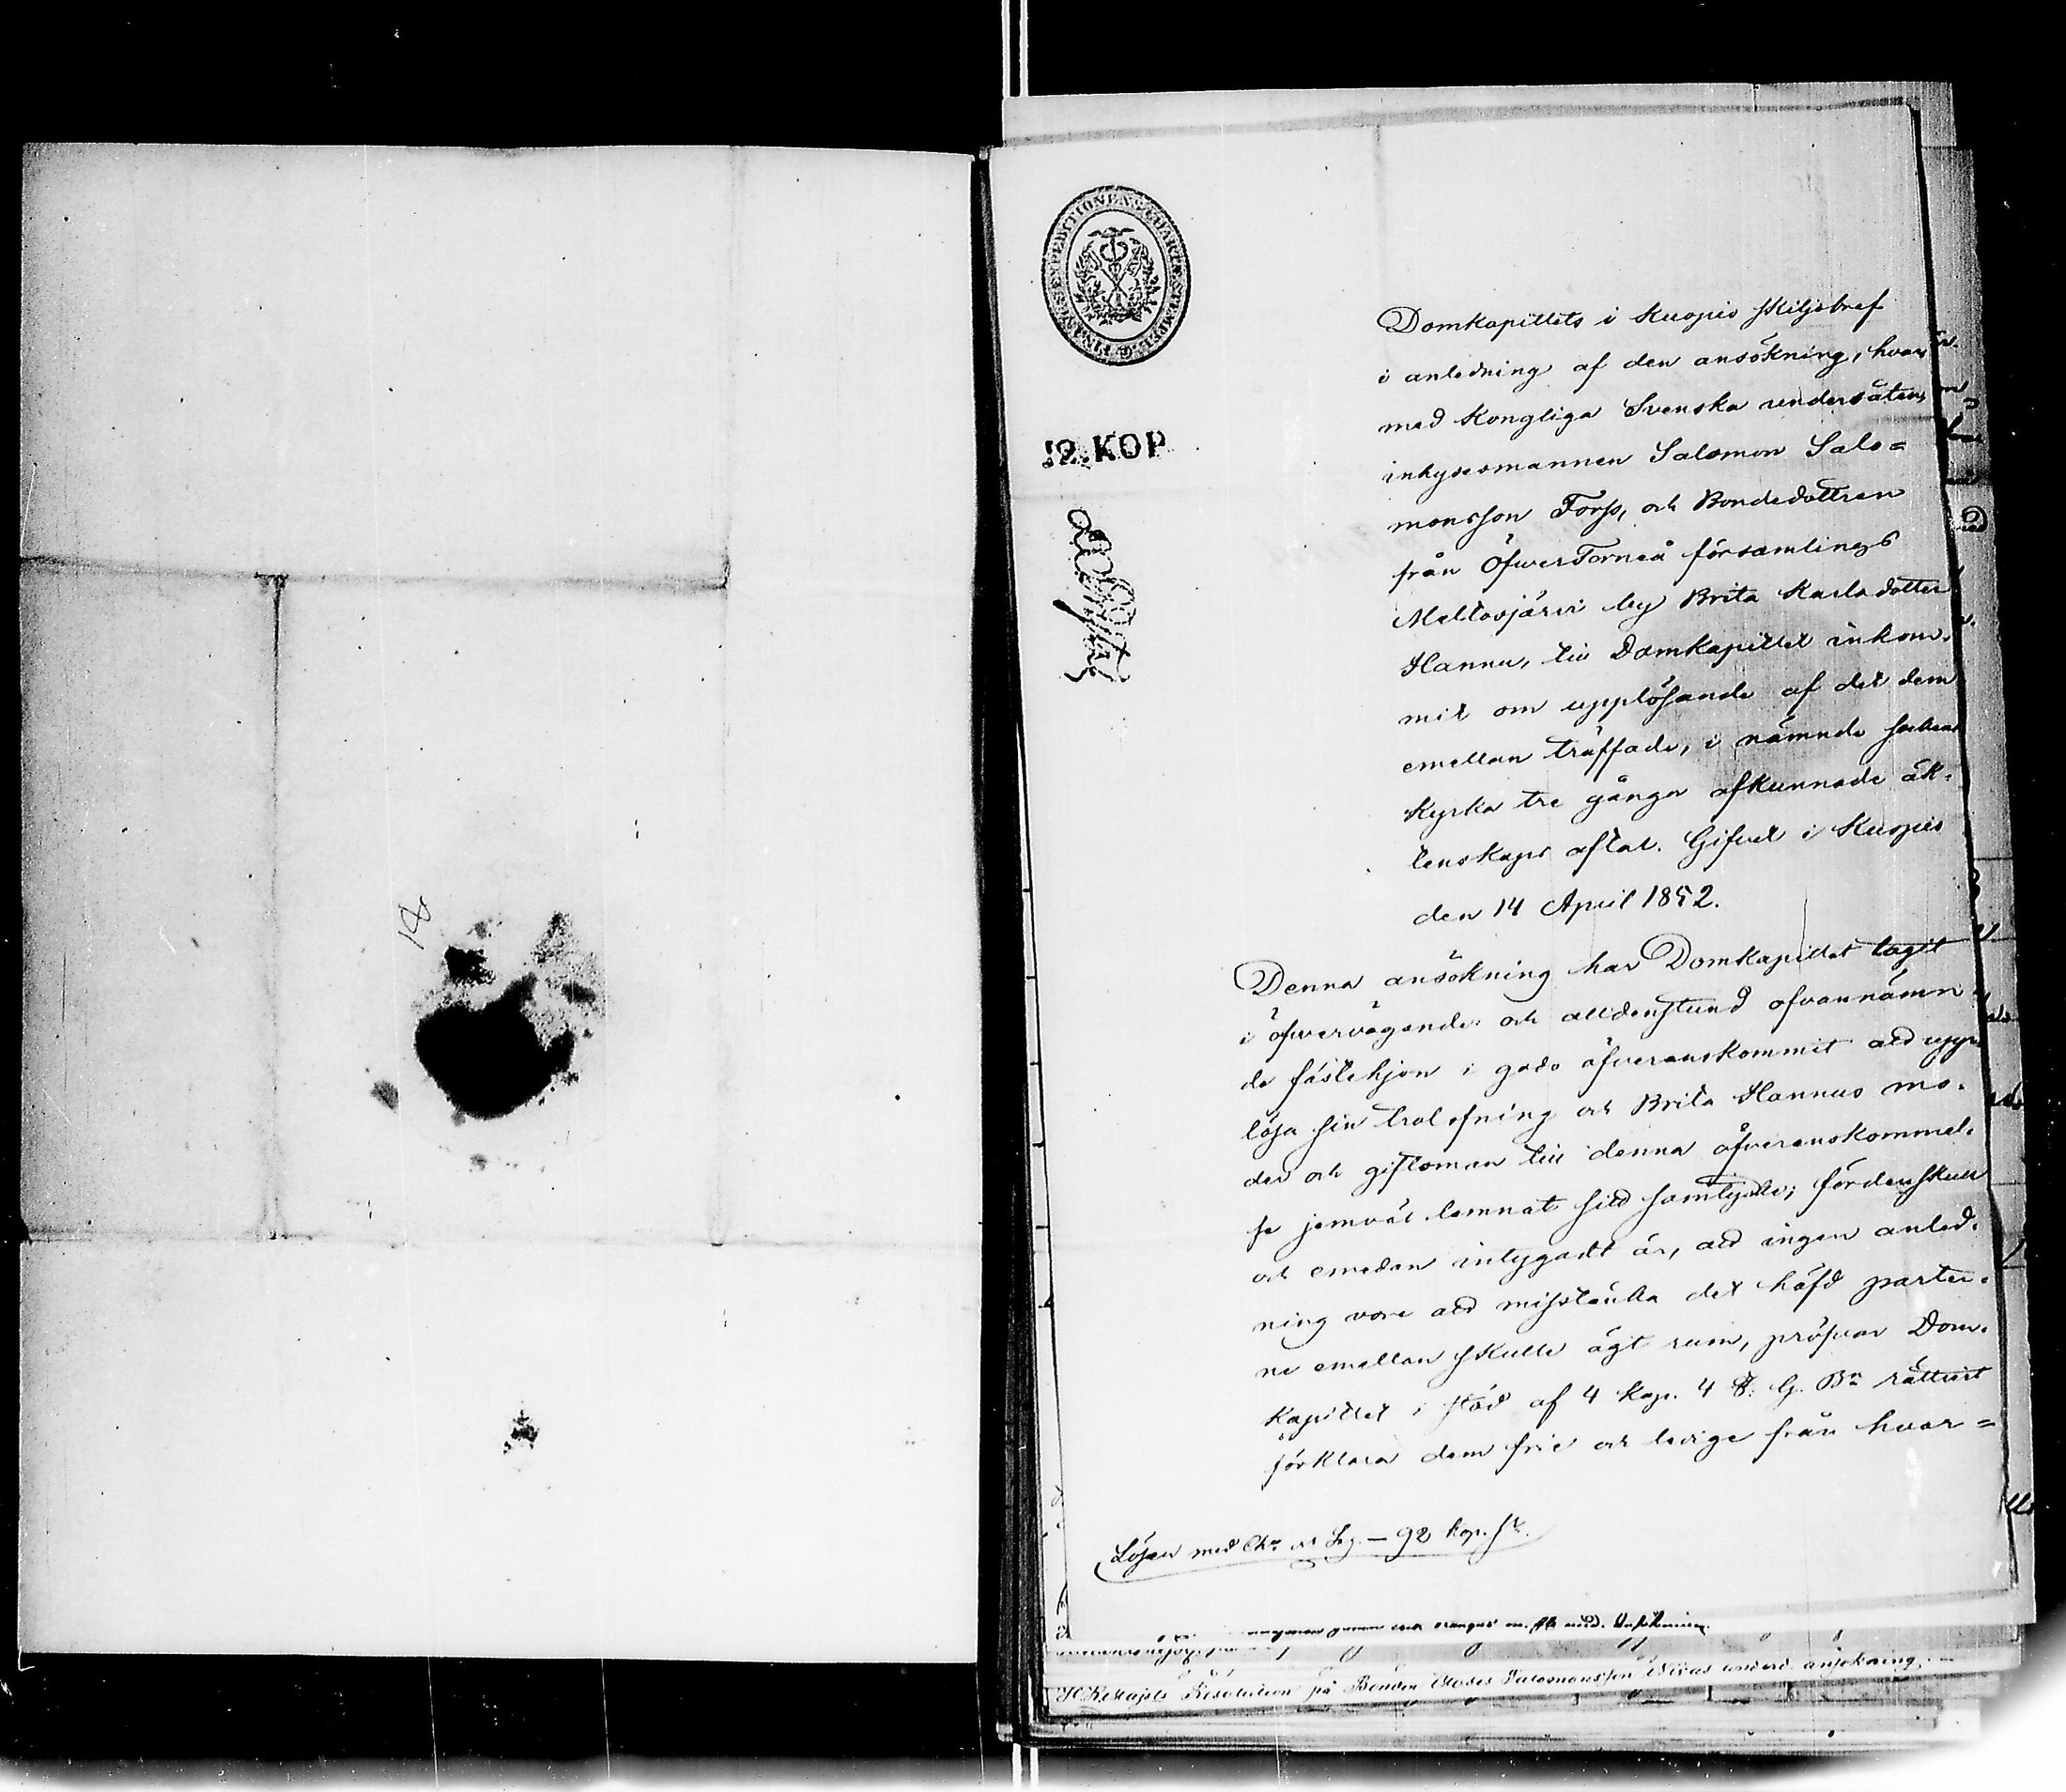 FINANCE EXPEDITIONENS CHARTÆ STEMPEL
12. KOP
Domkapitlets i Kuopio skiljobref
i anledning af den ansökning, hvar-
med Kongliga Svenska undersåten,
inhysesmannen Salomon Salo=
monsson Forss, och Bondedottren
från ÖfverTorneå församlings
Meltosjärvi by Brita Karlsdotter
Hannu, till Domkapitlet inkom-
mit om upplösande af det dem
emellan träffade, i nämnde sockens
kyrka tre gånger afkunnade äk-
tenskaps aftal. Gifvet i Kuopio
den 14 April 1852.
Denna ansökning har Domkapitlet tagit
i öfvervägande; och alldenstund ofvannämn-
de fästehjon i godo öfverenskommit att upp-
lösa sin trolofning och Brita Hannus mo-
der och giftoman till denna öfverenskommel-
se jemväl lemnat sitt samtycke; fördenskull
och emedan intygadt är, att ingen anled-
ning vore att misstänka det häfd parter-
ne emellan skulle ägt rum, pröfvar Dom-
kapitlet i stöd af 4 Kap. 4 §. G. Bn rättvist
förklara dem frie och ledige från hvar=
Lösen med Cha och Sig. — 92 kop. Sr.
Resolution på Bonden Moses Salomonsson underd. ansökning